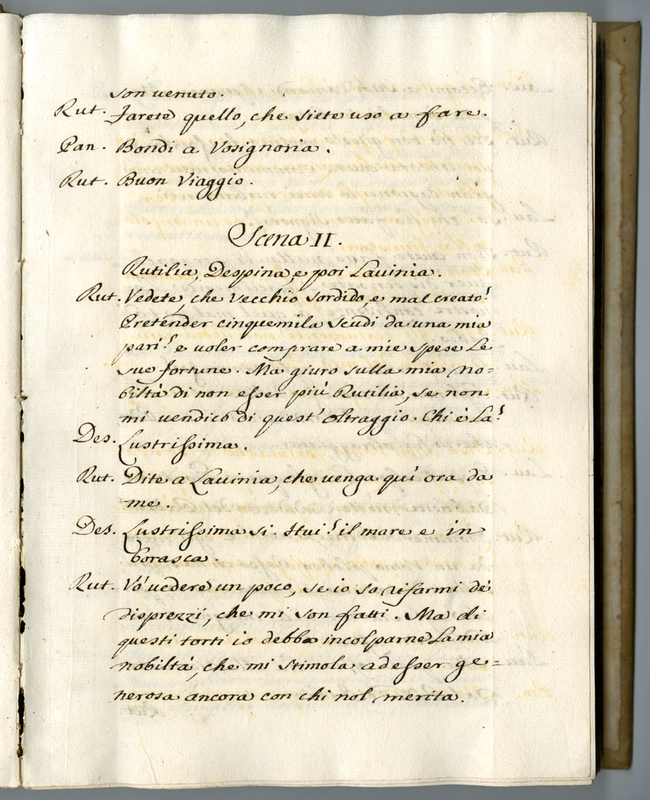 son venuto.
Rut. Farete quello, che siete uso a fare.
Pan. Bondi a Vosignoria.
Rut. Buon Viaggio.
Scena II.
Rutilia, Despina, e poi Lavinia.
Rut. Vedete, che vecchio sordido, e mal creato!
Pretender cinquemila scudi da una mia
pari! e voler comprare a mie spese le
sue fortune. Ma giuro sulla mia no=
biltà di non esser più Rutilia, se non
mi vendico di quest' oltraggio. Chi è là!
Des. Lustrissima.
Rut. Dite a Lavinia, che venga quì ora da
me.
Des. Lustrissima si. Hui! il mare e in
borasca.
Rut. Vò vedere un poco, se io so rifarmi de'
disprezzi, che mi son fatti. Ma di
questi torti io debbo incolparne la mia
nobiltà, che mi stimola ad esser ge=
nerosa ancora con chi nol merita.